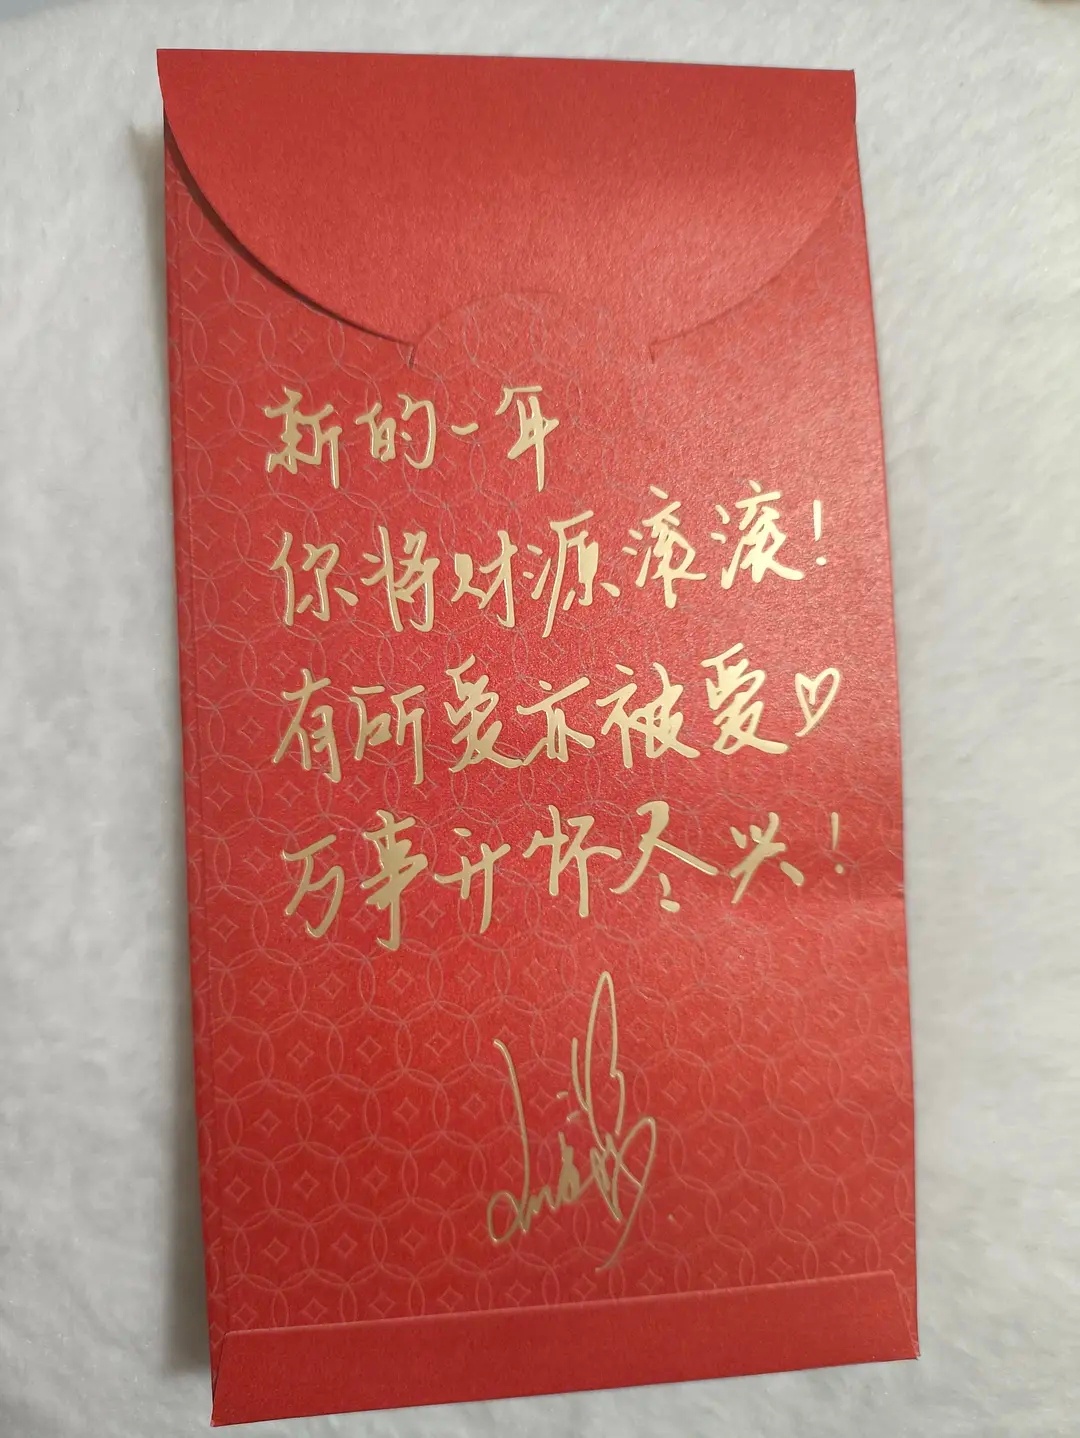 新的一年
你将财源滚滚！
有所爱亦被爱♡
万事开怀尽兴！